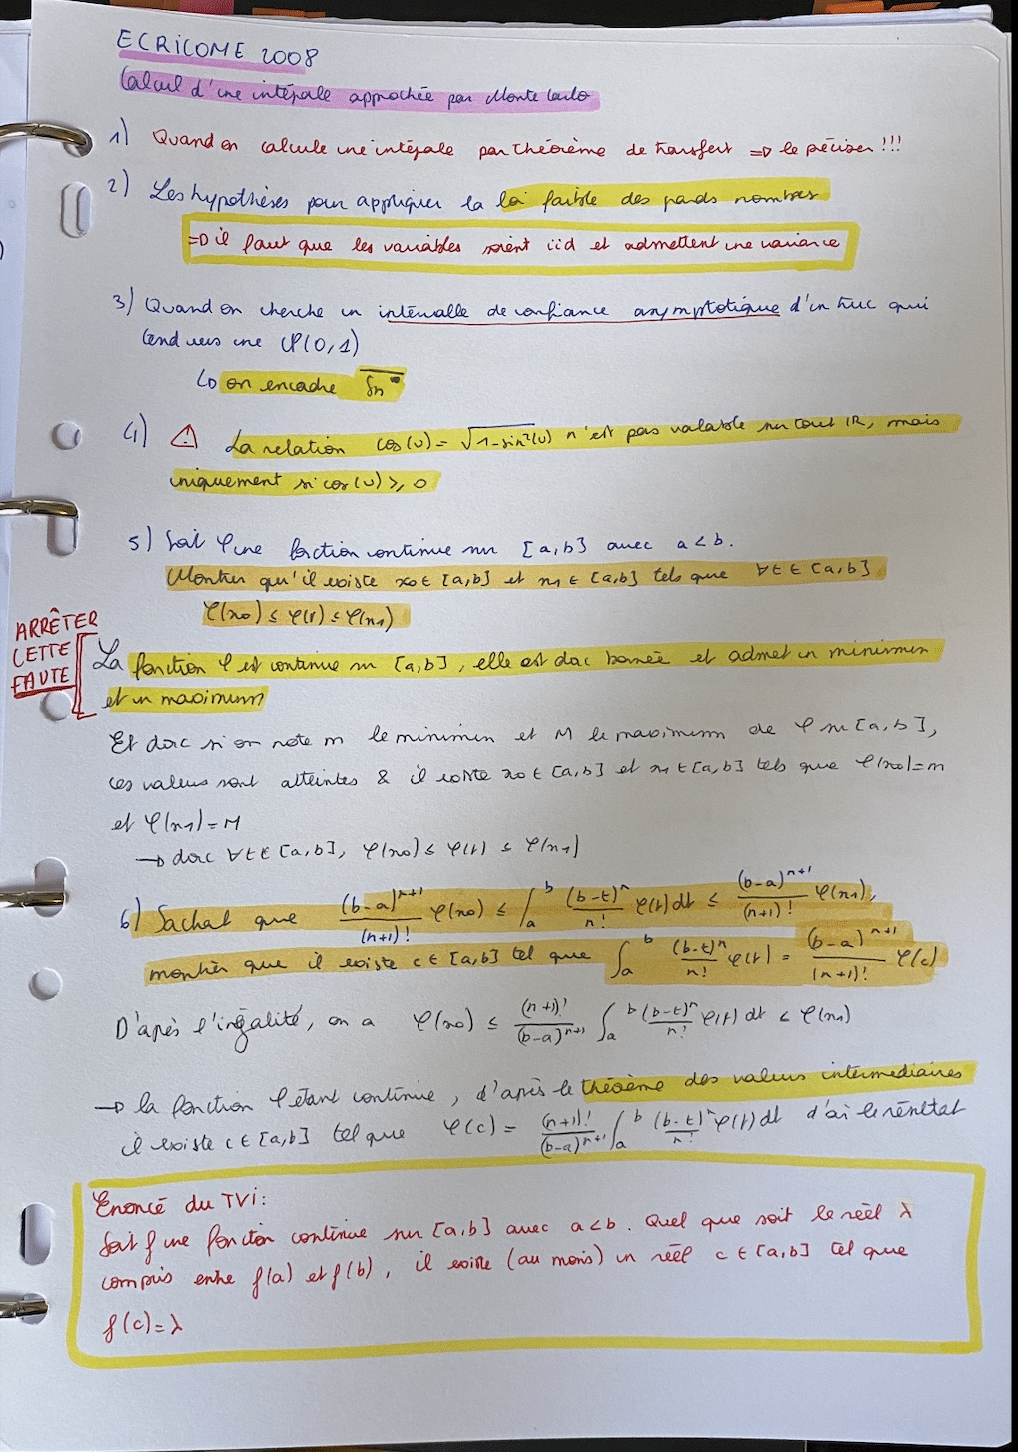 ECRICOME 2008
Calcul d'une intégrale approchée par Monte Carlo
1) Quand on calcule une intégrale par théorème de transfert => le préciser !!!
2) Les hypothèses pour appliquer la loi faible des grands nombres
=> il faut que les variables soient iid et admettent une variance
3) Quand on cherche un intervalle de confiance asymptotique d'un truc qui
tend vers une N(0,1)
↳ on encadre
4) ⚠ La relation cos(u) = √(1-sin²(u)) n'est pas valable sur tout IR, mais
uniquement si cos(u) ≥ 0
5) Soit φ une fonction continue sur [a,b] avec a<b.
Montrer qu'il existe x0 ∈ [a,b] et x1 ∈ [a,b] tels que ∀t ∈ [a,b]
φ(x0) ≤ φ(t) ≤ φ(x1)
ARRÊTER
CETTE
FAUTE
La fonction φ est continue sur [a,b], elle est donc bornée et admet un minimum
et un maximum
Et donc si on note m le minimum et M le maximum de φ sur [a,b],
ces valeurs sont atteintes & il existe x0 ∈ [a,b] et x1 ∈ [a,b] tels que φ(x0)=m
et φ(x1)=M
→ donc ∀t ∈ [a,b], φ(x0) ≤ φ(t) ≤ φ(x1)
6) Sachant que (b-a)^(n+1)/(n+1)! φ(x0) ≤ ∫_a^b (b-t)^n/n! φ(t)dt ≤ (b-a)^(n+1)/(n+1)! φ(x1),
montrer que il existe c ∈ [a,b] tel que ∫_a^b (b-t)^n/n! φ(t) = (b-a)^(n+1)/(n+1)! φ(c)
D'après l'inégalité, on a φ(x0) ≤ (n+1)!/(b-a)^(n+1) ∫_a^b (b-t)^n/n! φ(t) dt < φ(x1)
→ la fonction φ étant continue, d'après le théorème des valeurs intermédiaires
il existe c ∈ [a,b] tel que φ(c) = (n+1)!/(b-a)^(n+1) ∫_a^b (b-t)^n/n! φ(t) dt d'où le résultat
Enoncé du TVI :
Soit f une fonction continue sur [a,b] avec a<b. Quel que soit le réel λ
compris entre f(a) et f(b), il existe (au moins) un réel c ∈ [a,b] tel que
f(c)=λ